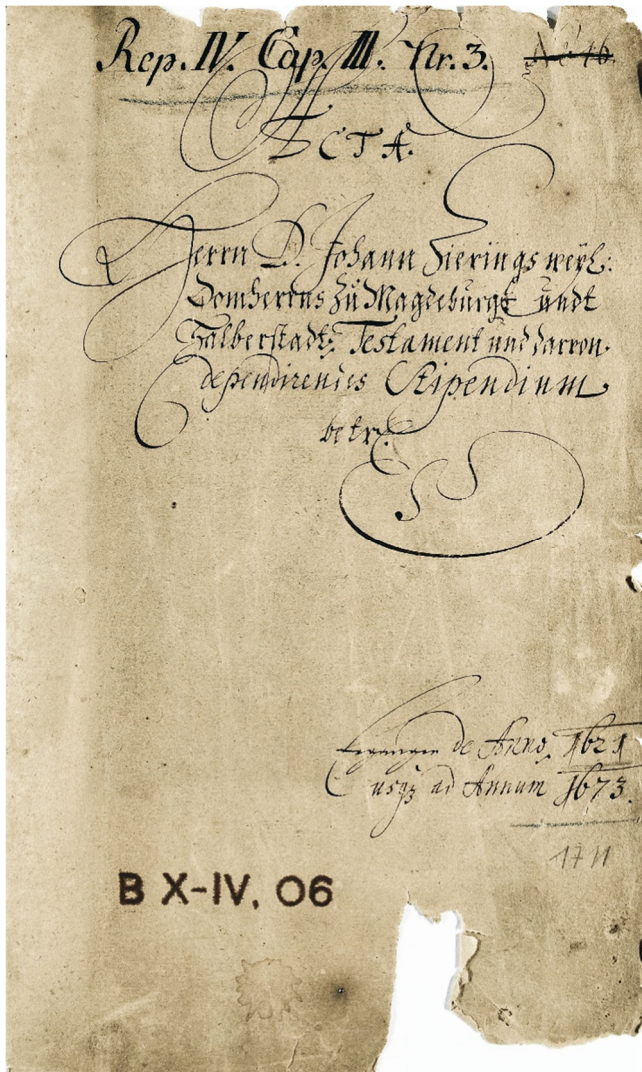 Rep. IV. Cap. III. Nr. 3. No 16
ACTA.
Herrn D. Johann Zierings weyl:
Domherrns zu Magdeburgk undt
Halberstadt, Testament und darvon
dependirendes Stipendium
betr.
Ergangen de Anno, 1621
usq3 ad Annum 1673.
1711
B X-IV, 06